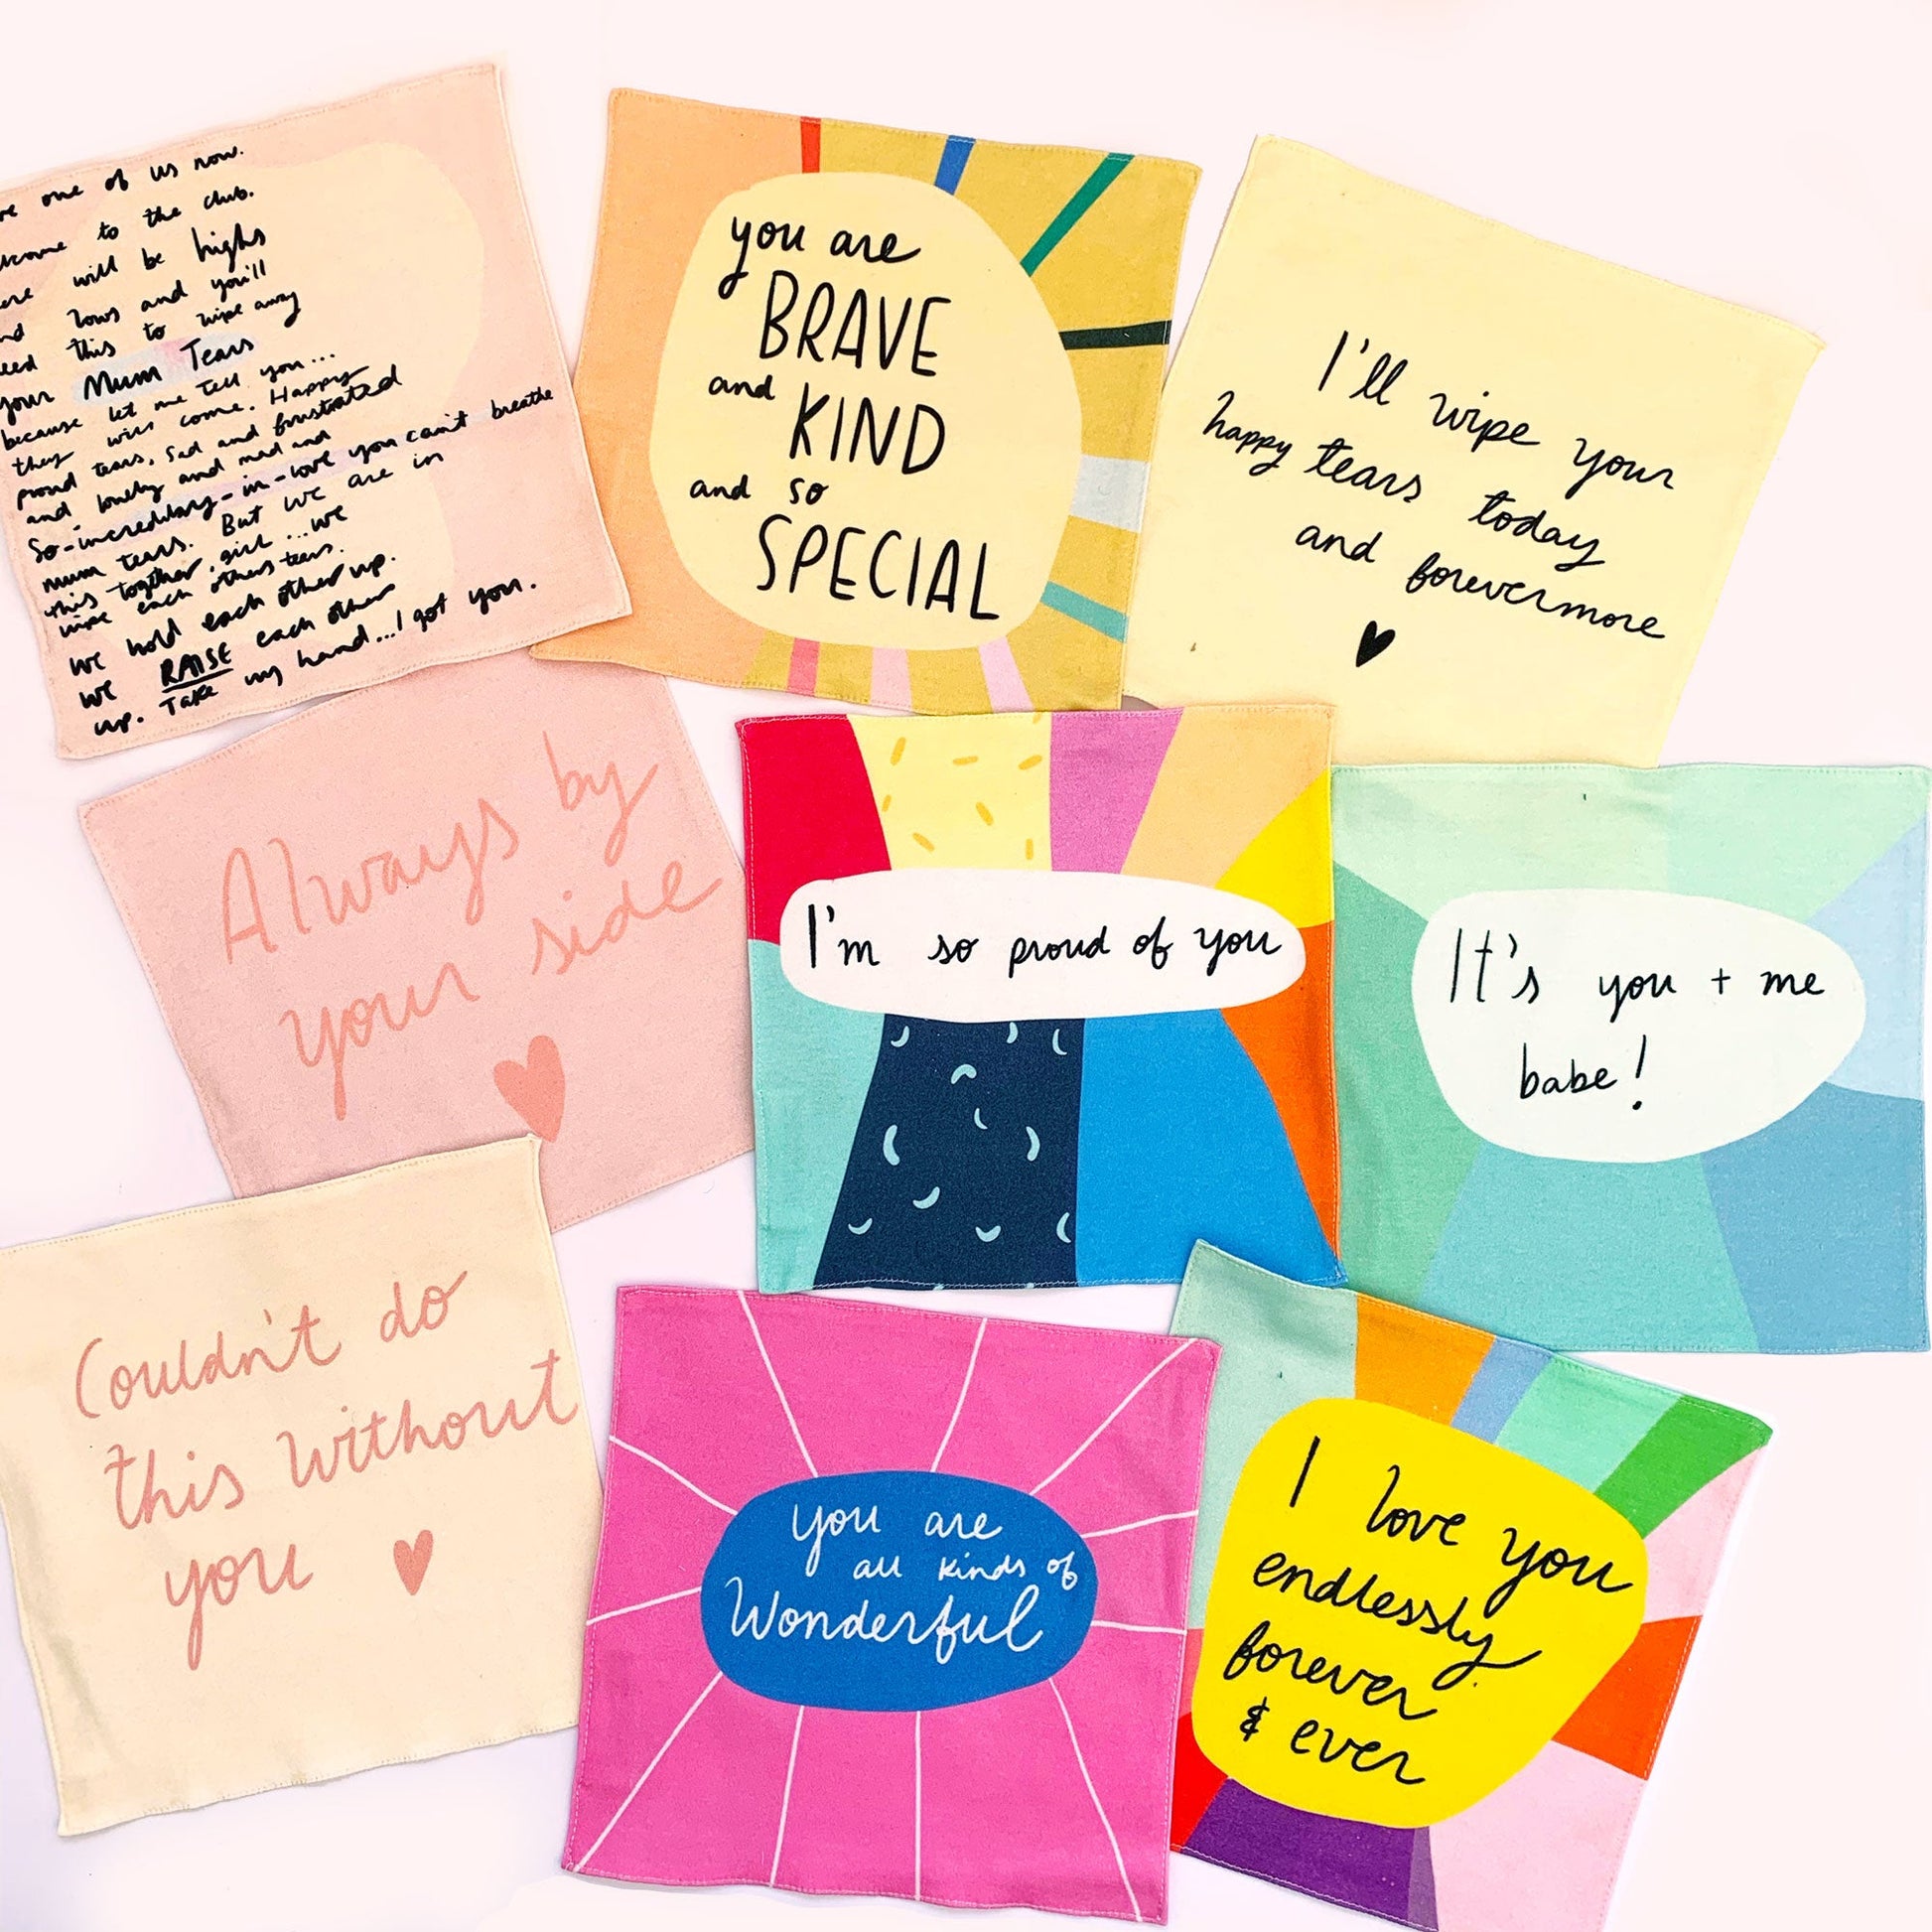 one of us now.
to the club.
will be highs
lows and you'll
this to wipe away
your Mum Tears
because let me tell you...
they will come. Happy
proud tears, sad and frustrated
and lonely and mad and
So-incredibly-in-love you can't breathe
mum tears. But we are in
this together, girl ...we
wipe each others tears.
We hold each other up.
We RAISE each other
up. Take my hand...I got you.
you are
BRAVE
and KIND
and so
SPECIAL
I'll wipe your
happy tears today
and forevermore
Always by
your side
I'm so proud of you
It's you + me
babe!
Couldn't do
this without
you
you are
all kinds of
Wonderful
I love you
endlessly
forever
& ever